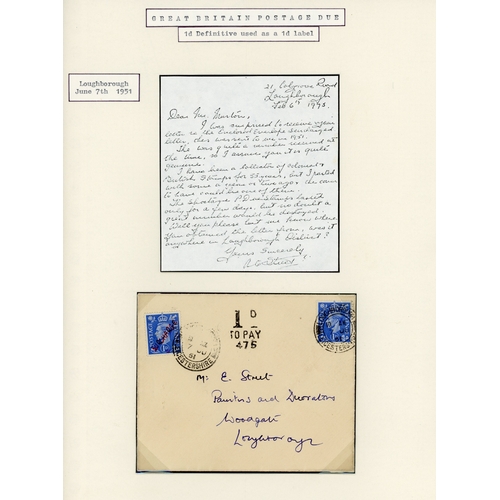 GREAT BRITAIN POSTAGE DUE
1d Definitive used as a 1d label
Loughborough
June 7th 1951
21, Road
Loughborough
Feb 6th 1993.
Dear Mr.
I was surprised to receive your
letter re the enclosed Envelope Surcharged
letter, that was sent to me in 1951.
There was quite a number received at
the time, so I assure you it is quite
genuine.
I have been a collector of
British Stamps for years, but I parted
with some years ago, this
could be one of them.
The Shortage P. Due Stamps lasted
only for a few days, but no doubt a
great number would be destroyed.
Will you please let me know where
you obtained the letter from, was it
anywhere in Loughborough District?
Yours Sincerely
Street
POSTAGE
1D
TO PAY
475
Mr E. Street
Painters and Decorators
Woodgate
Loughborough